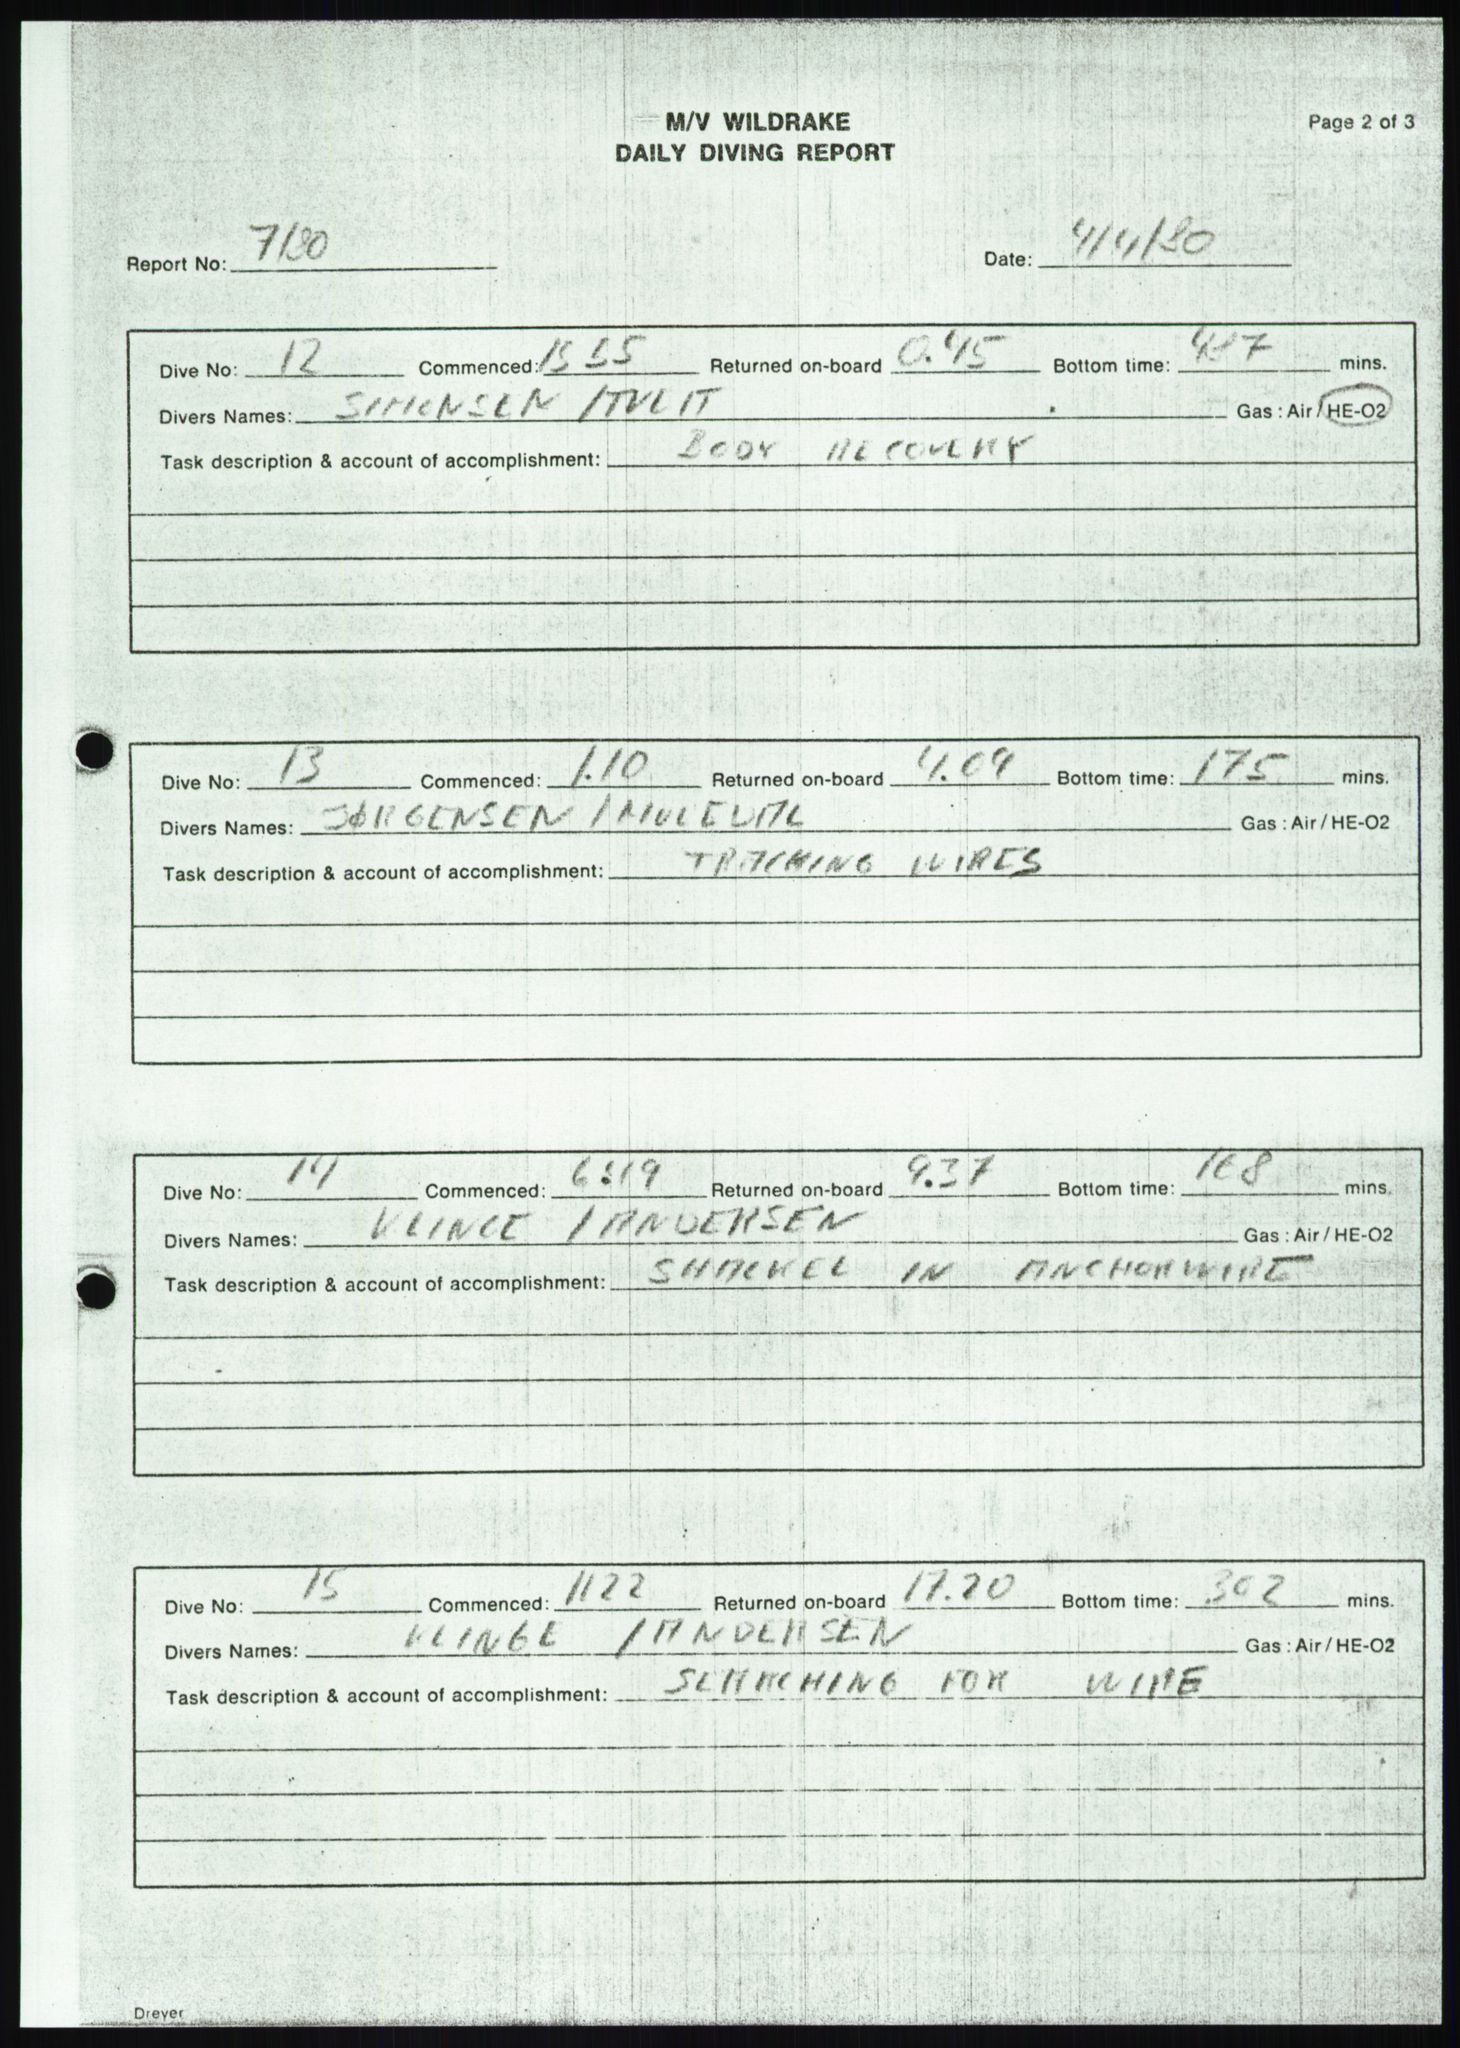 M/V WILDRAKE
Page 2 of 3
DAILY DIVING REPORT
Report No: 7/80 Date: 4/4/80
Dive No: 12 Commenced: 1555 Returned on-board 0.45 Bottom time: 487 mins.
Divers Names: SIMONSEN / TVEIT Gas : Air / HE-O2
Task description & account of accomplishment: BODY RECOVERY
Dive No: 13 Commenced: 1.10 Returned on-board 4.09 Bottom time: 175 mins.
Divers Names: JØRGENSEN / Gas : Air / HE-O2
Task description & account of accomplishment: TRACKING WIRES
Dive No: 14 Commenced: 6:19 Returned on-board 9.37 Bottom time: 168 mins.
Divers Names: KLINGE / ANDERSEN Gas : Air / HE-O2
Task description & account of accomplishment: SHACKEL IN ANCHORWIRE
Dive No: 15 Commenced: 1122 Returned on-board 17.20 Bottom time: 302 mins.
Divers Names: KLINGE / ANDERSEN Gas : Air / HE-O2
Task description & account of accomplishment: SEARCHING FOR WIRE
Dreyer